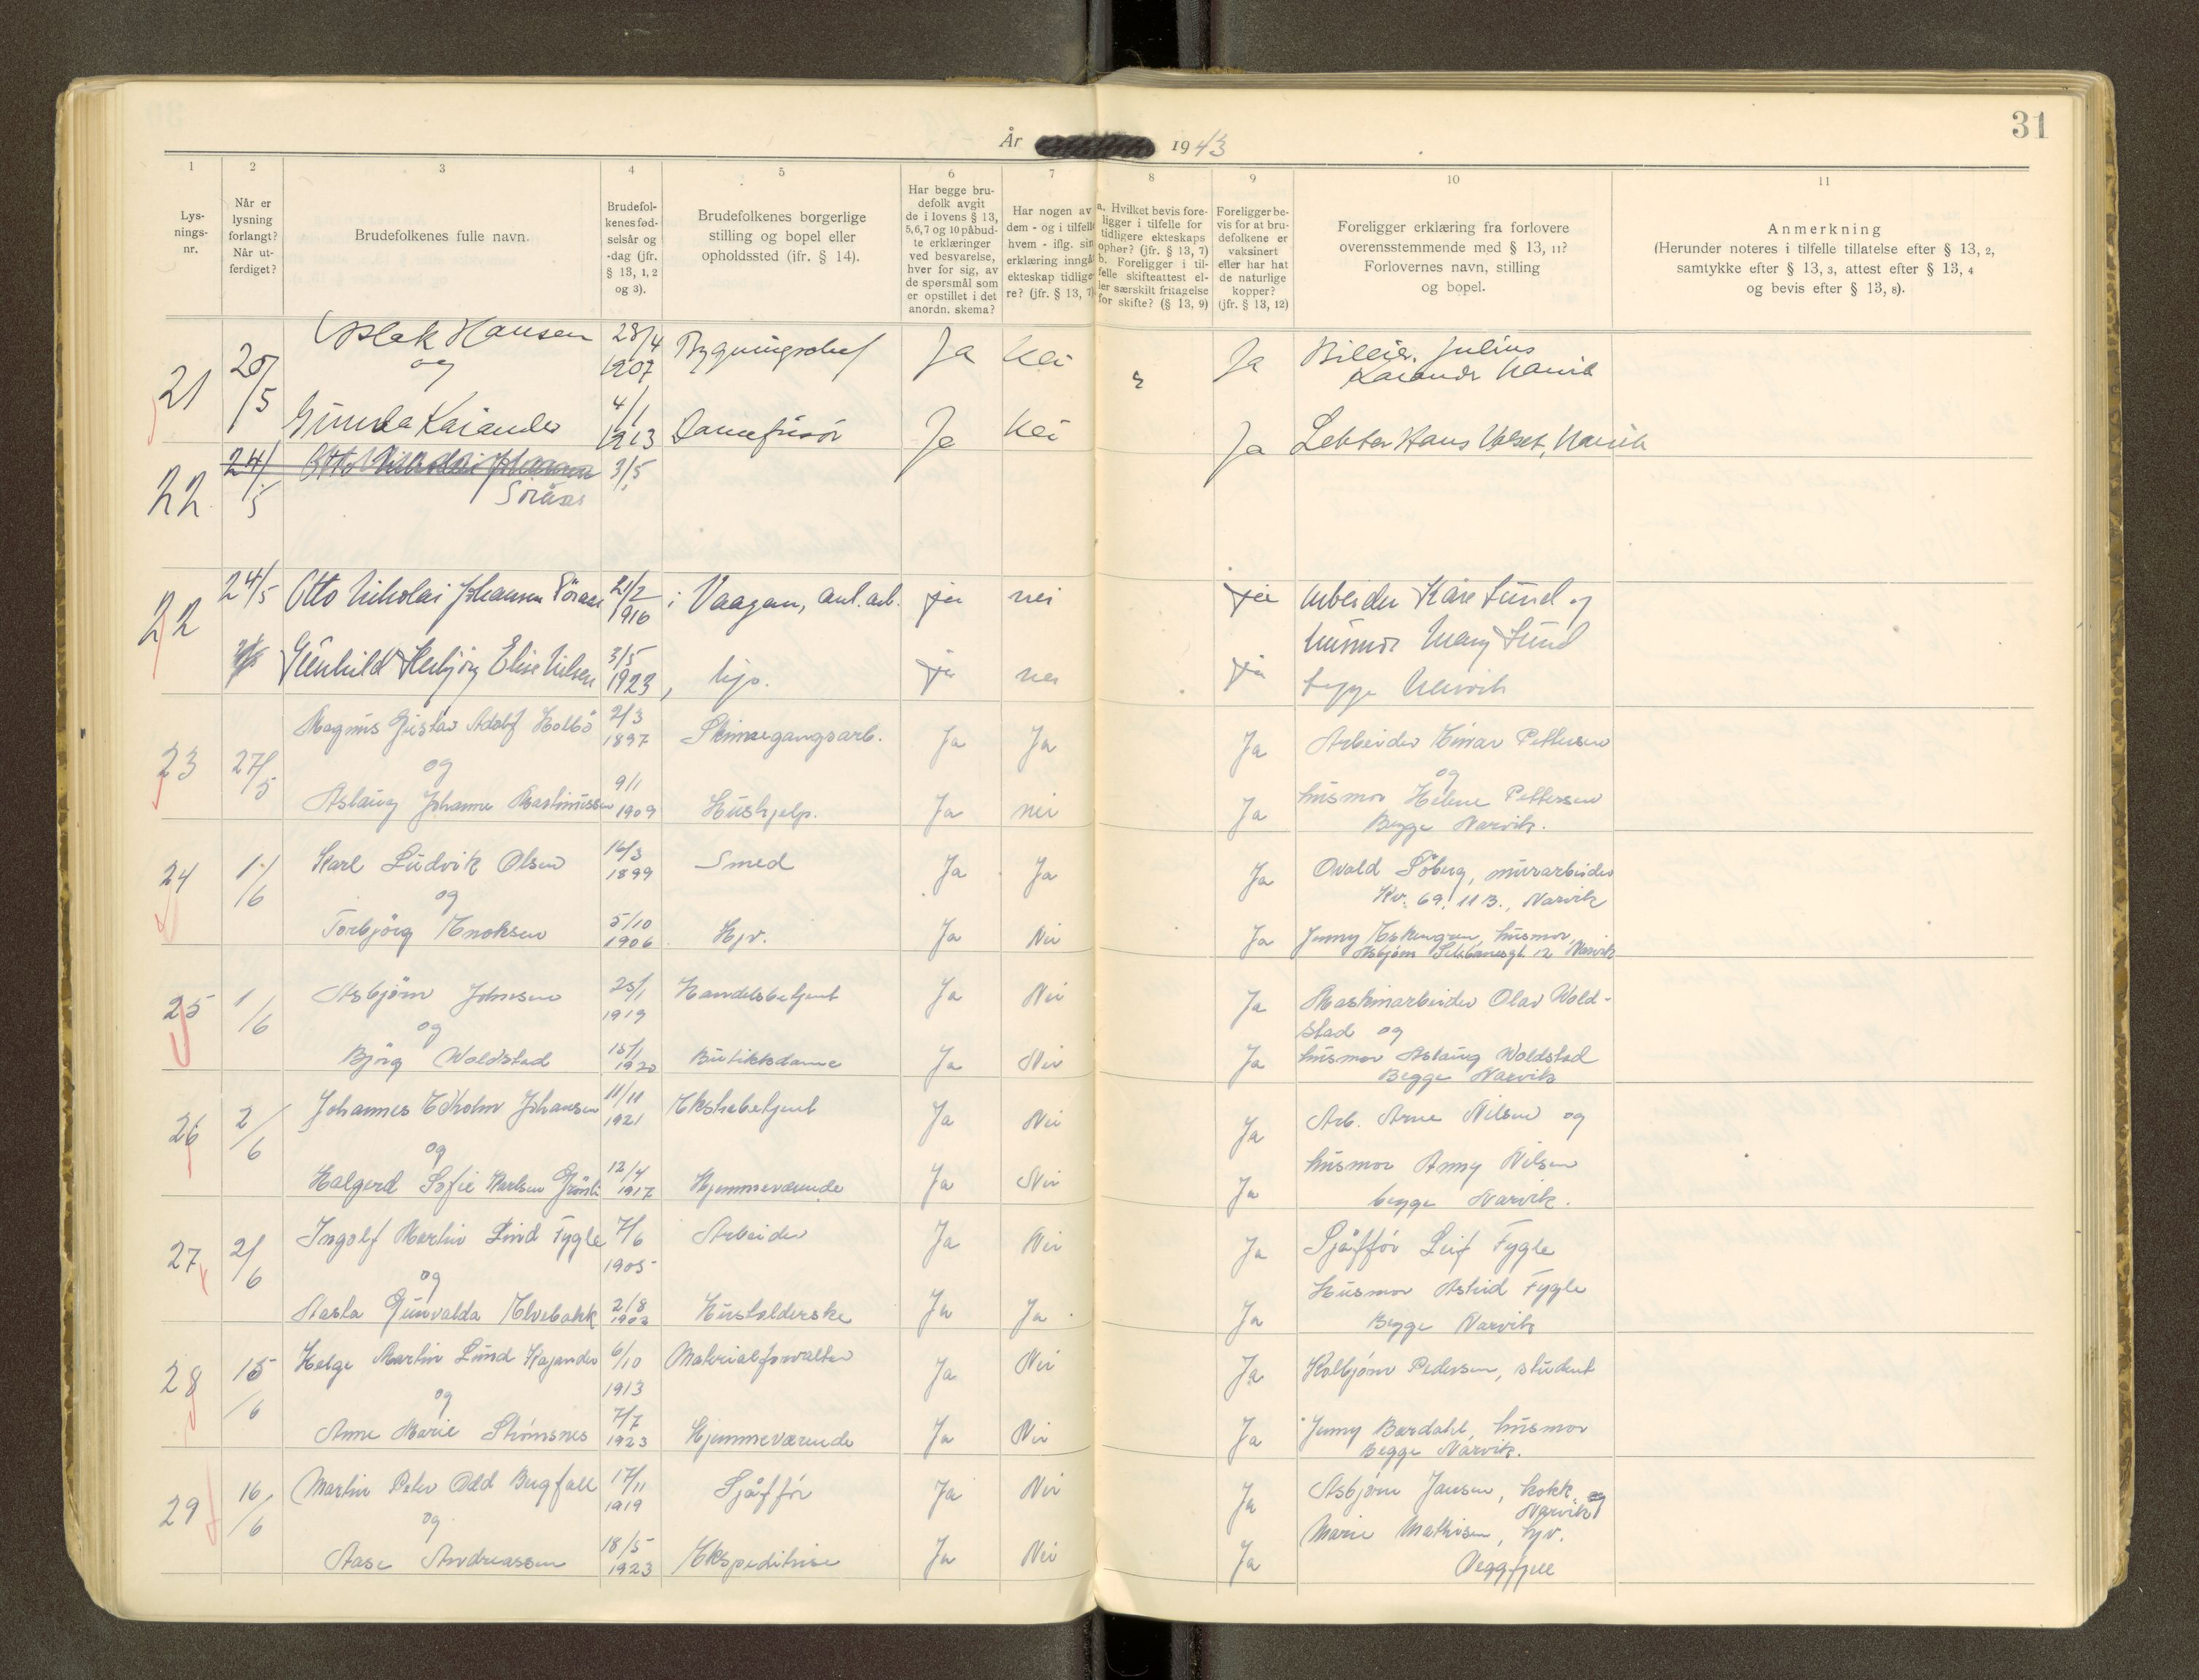 31
År 1943
1 2 3 4 5 6 7 8 9 10 11
Lys-
nings-
nr.
Når er
lysning
forlangt?
Når ut-
ferdiget?
Brudefolkenes fulle navn.
Brudefol-
kenes fød-
selsår og
-dag (jfr.
§ 13, 1, 2
og 3).
Brudefolkenes borgerlige
stilling og bopel eller
opholdssted (ifr. § 14).
Har begge bru-
defolk avgit
de i lovens § 13,
5, 6, 7 og 10 påbud-
te erklæringer
ved besvarelse,
hver for sig, av
de spørsmål som
er opstillet i det
anordn. skema?
Har nogen av
dem - og i tilfelle
hvem - iflg. sin
erklæring inngå
ekteskap tidlige-
re? (jfr. § 13, 7)
a. Hvilket bevis fore-
ligger i tilfelle for
tidligere ekteskaps
ophør? (jfr. § 13, 7)
b. Foreligger i til-
felle skifteattest el-
ler særskilt fritagelse
for skifte? (§ 13, 9)
Foreligger be-
vis for at bru-
defolkene er
vaksinert
eller har hat
de naturlige
kopper?
(jfr. § 13, 12)
Foreligger erklæring fra forlovere
overensstemmende med § 13, 11?
Forlovernes navn, stilling
og bopel.
Anmerkning
(Herunder noteres i tilfelle tillatelse efter § 13, 2,
samtykke efter § 13, 3, attest efter § 13, 4
og bevis efter § 13, 8).
21 20/5 Aslak Hansen 28/4 1907 Ja Nei Ja Julius
og
4/1 1913 Damefrisør Ja Nei Ja Lektor Hans
22 24/5 Otto Nikolai Johansen 3/5
Söraas
22 24/5 Otto Nikolai Johansen Söraas 21/2 1916 i Vaagan, anl. arb. ja nei ja Arbeider Kåre Lund og
husmor Mary Lund
Gunhild Herbjörg Elise Nilsen 3/5 1923, hjv. ja nei ja begge Narvik
23 27/5 Magnus Gustav Adolf Holbö 2/3 1897 Skinnegangsarb. Ja Ja Ja Arbeider Einar Pettersen
og og
Aslaug Johanne Martinussen 9/1 1909 Hushjelp. Ja nei Ja husmor Helene Pettersen
Begge Narvik.
24 1/6 Karl Ludvik Olsen 16/3 1899 Smed Ja Ja Ja Osvald Söberg, murarbeider
og Kv. 69, 113., Narvik
Torbjörg Enoksen 5/10 1906 Hjv. Ja Nei Ja Jenny husmor,
12 Narvik
25 1/6 Asbjörn Johnsen 25/1 1919 Handelsbetjent Ja Nei Ja Maskinarbeider Olav Wold-
og stad og
Björg Woldstad 15/1 1920 Butikksdame Ja Nei Ja husmor Aslaug Woldstad
Begge Narvik
26 2/6 Johannes Edholm Johansen 11/11 1921 Ekstrabetjent Ja Nei Ja Arb. Arne Nilsen og
og husmor Anny Nilsen
Halgerd Sofie Karlsen 12/4 1917 Hjemmeværende Ja Nei Ja begge Narvik.
27 2/6 Ingolf Martin Lind Fygle 7/6 1905 Arbeider Ja Nei Ja Sjåffór Leif Fygle
og Husmor Astrid Fygle
Aasta Gunvalda Elvebakk 2/8 1902 Husholderske Ja Ja Ja Begge Narvik
28 15/6 Helge Martin Lund Kajander 6/10 1913 Materialforvalter Ja Nei Ja Kolbjörn Pedersen, student
og
Anne Marie Strömsnes 7/7 1923 Hjemmeværende Ja Nei Ja Jenny Bardahl, husmor
Begge Narvik.
29 16/6 Martin Peter Odd Bergfall 17/11 1919 Sjåffór Ja Nei Ja Asbjörn Jansen, kokk
og Narvik og
Marie Mathisen, hjv.
Aase Andreassen 18/5 1923 Ekspeditrise Ja Nei Ja Veggfjell